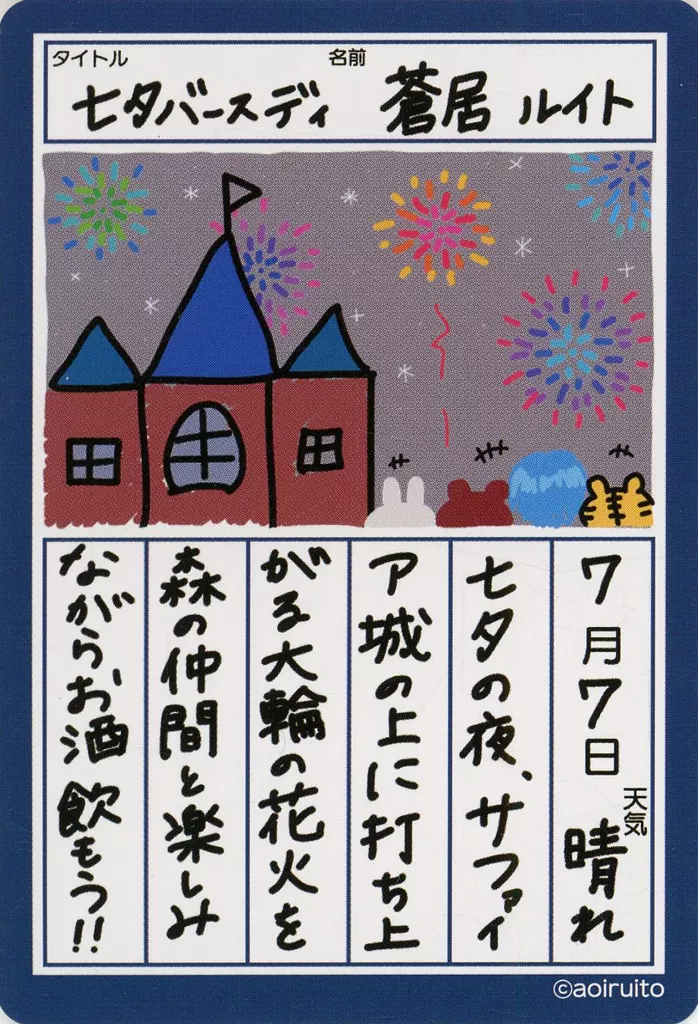 タイトル
七夕バースディ
名前
蒼居 ルイト
7月7日
天気
晴れ
七夕の夜、サファイ
ア城の上に打ち上
がる大輪の花火を
森の仲間と楽しみ
ながらお酒飲もう!!
©aoiruito